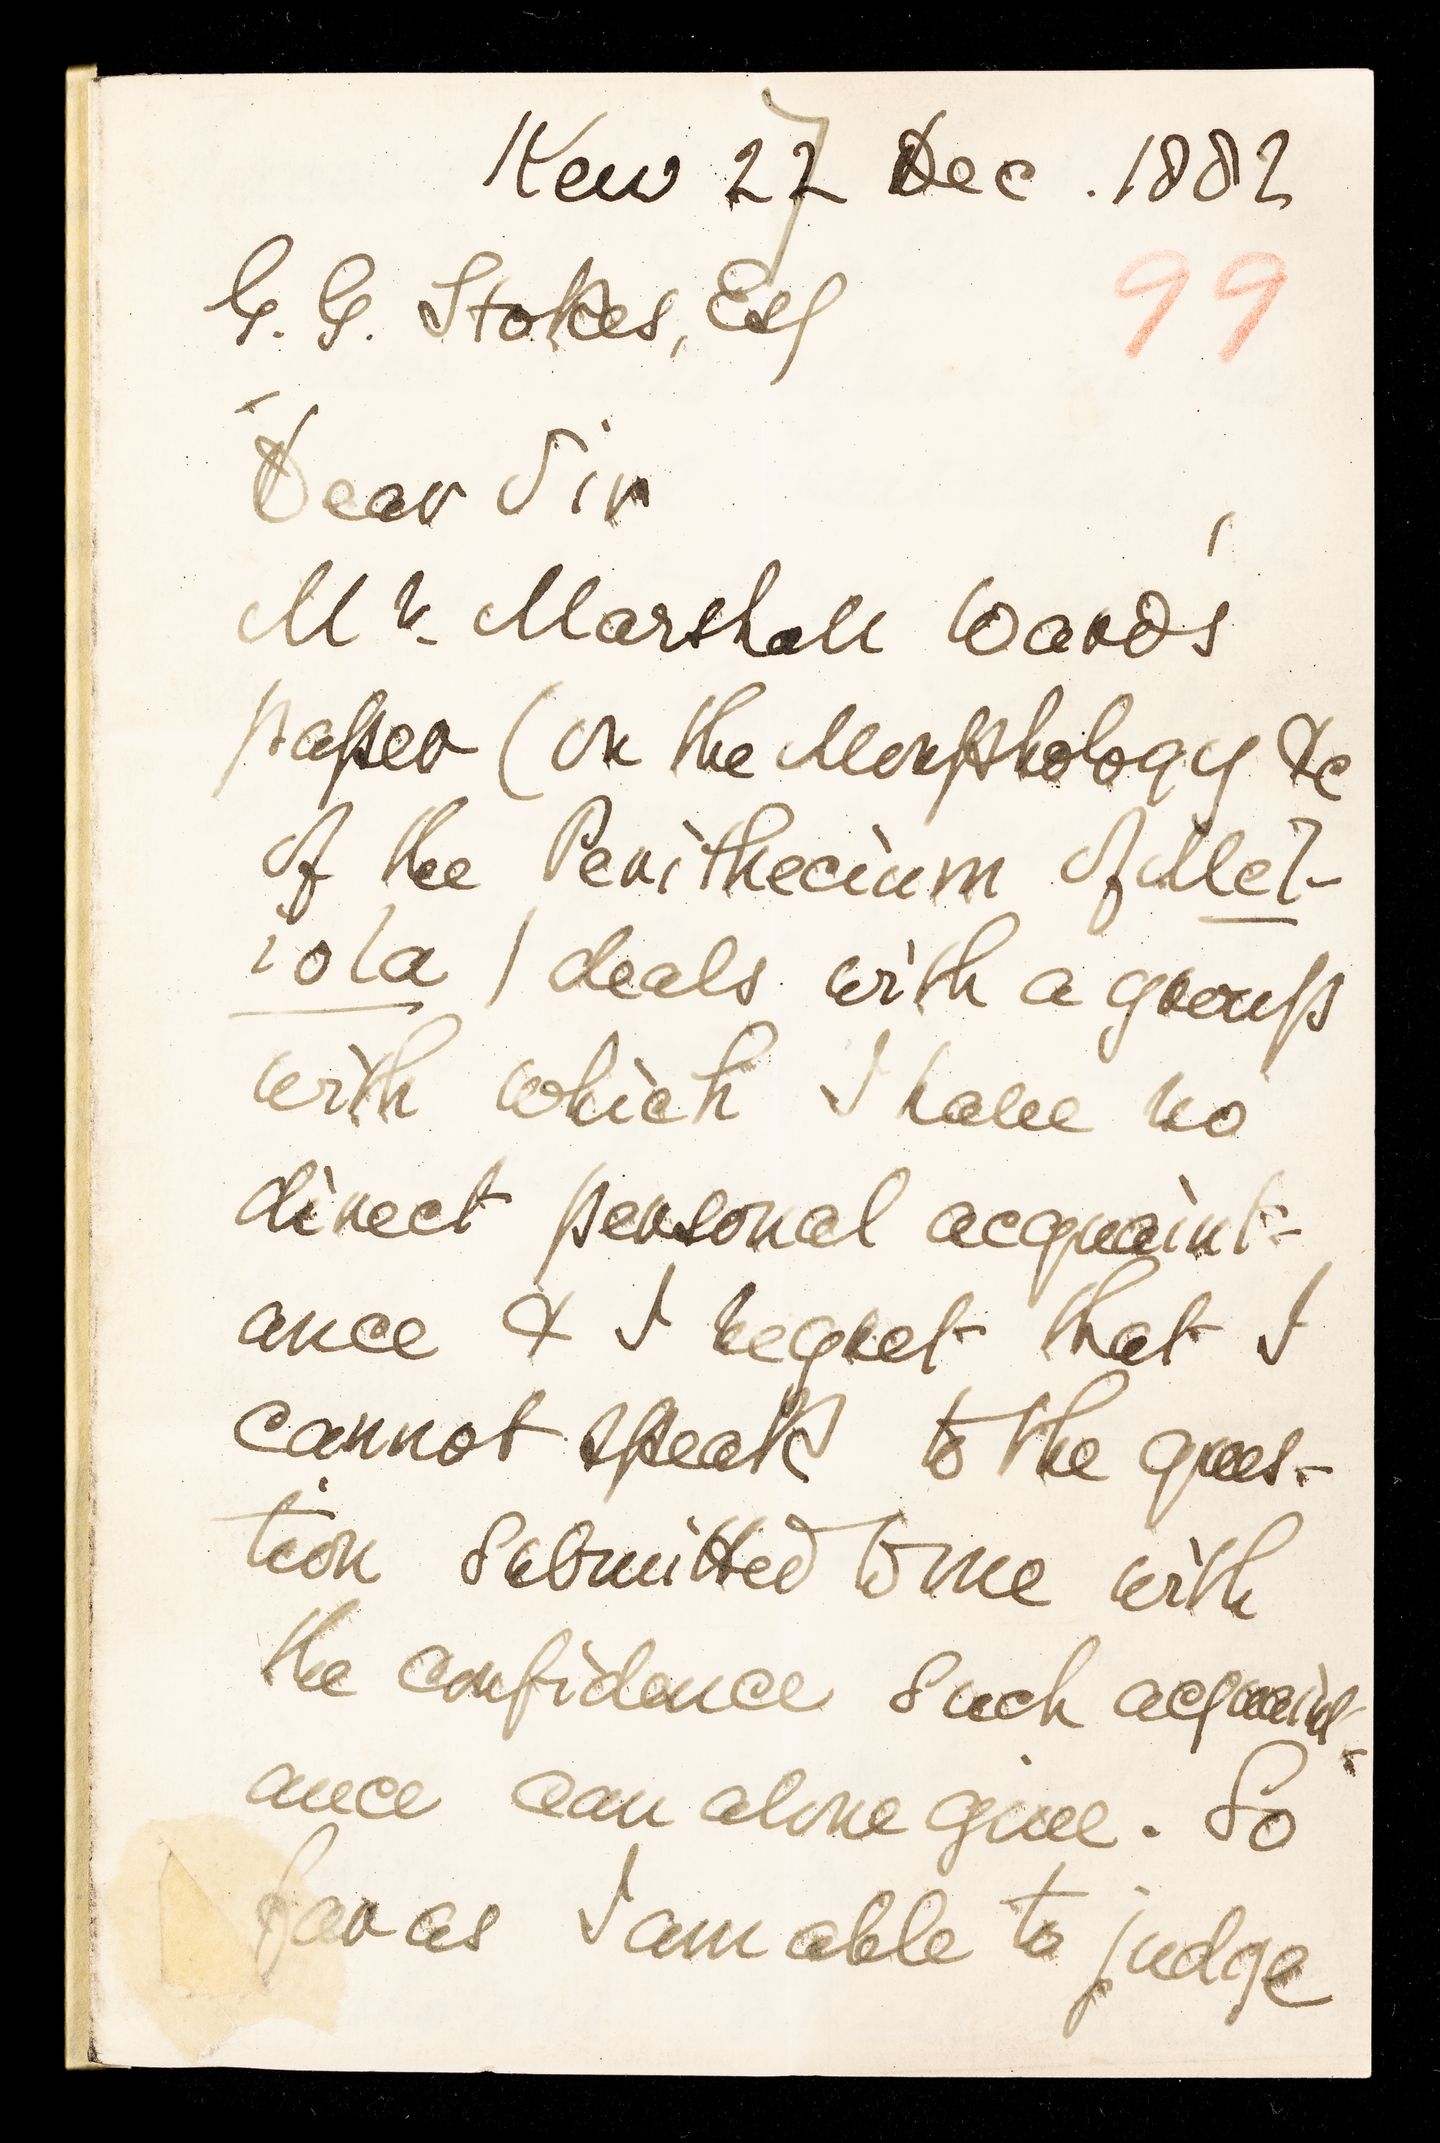 Kew 27 Dec. 1882
99
G. G. Stokes, Esq
Dear Sir
Mr. Marshall Ward's
paper (on the Morphology &c
of the Perithecium of Mel-
iola) deals with a group
with which I have no
direct personal acquaint-
ance & I regret that I
cannot speak to the ques-
tion submitted to me with
the confidence such acquaint-
ance can alone give. So
far as I am able to judge